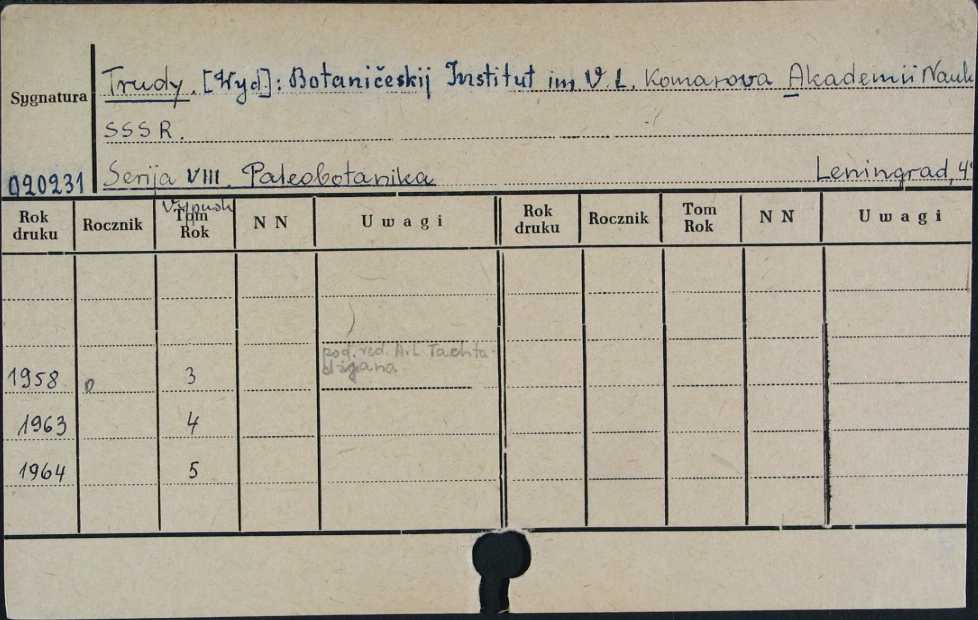 Trudy. [Wyd.]: Botaničeskij Institut im V. L. Komarova Akademii Nauk
Sygnatura
SSSR.
020231 Serija VIII. Paleobotanika Leningrad,
Vypusk
Rok druku Rocznik Tom Rok NN Uwagi Rok druku Rocznik Tom Rok NN Uwagi
pod. red. A. L. Tachta-
1958 3 džjana
1963 4
1964 5